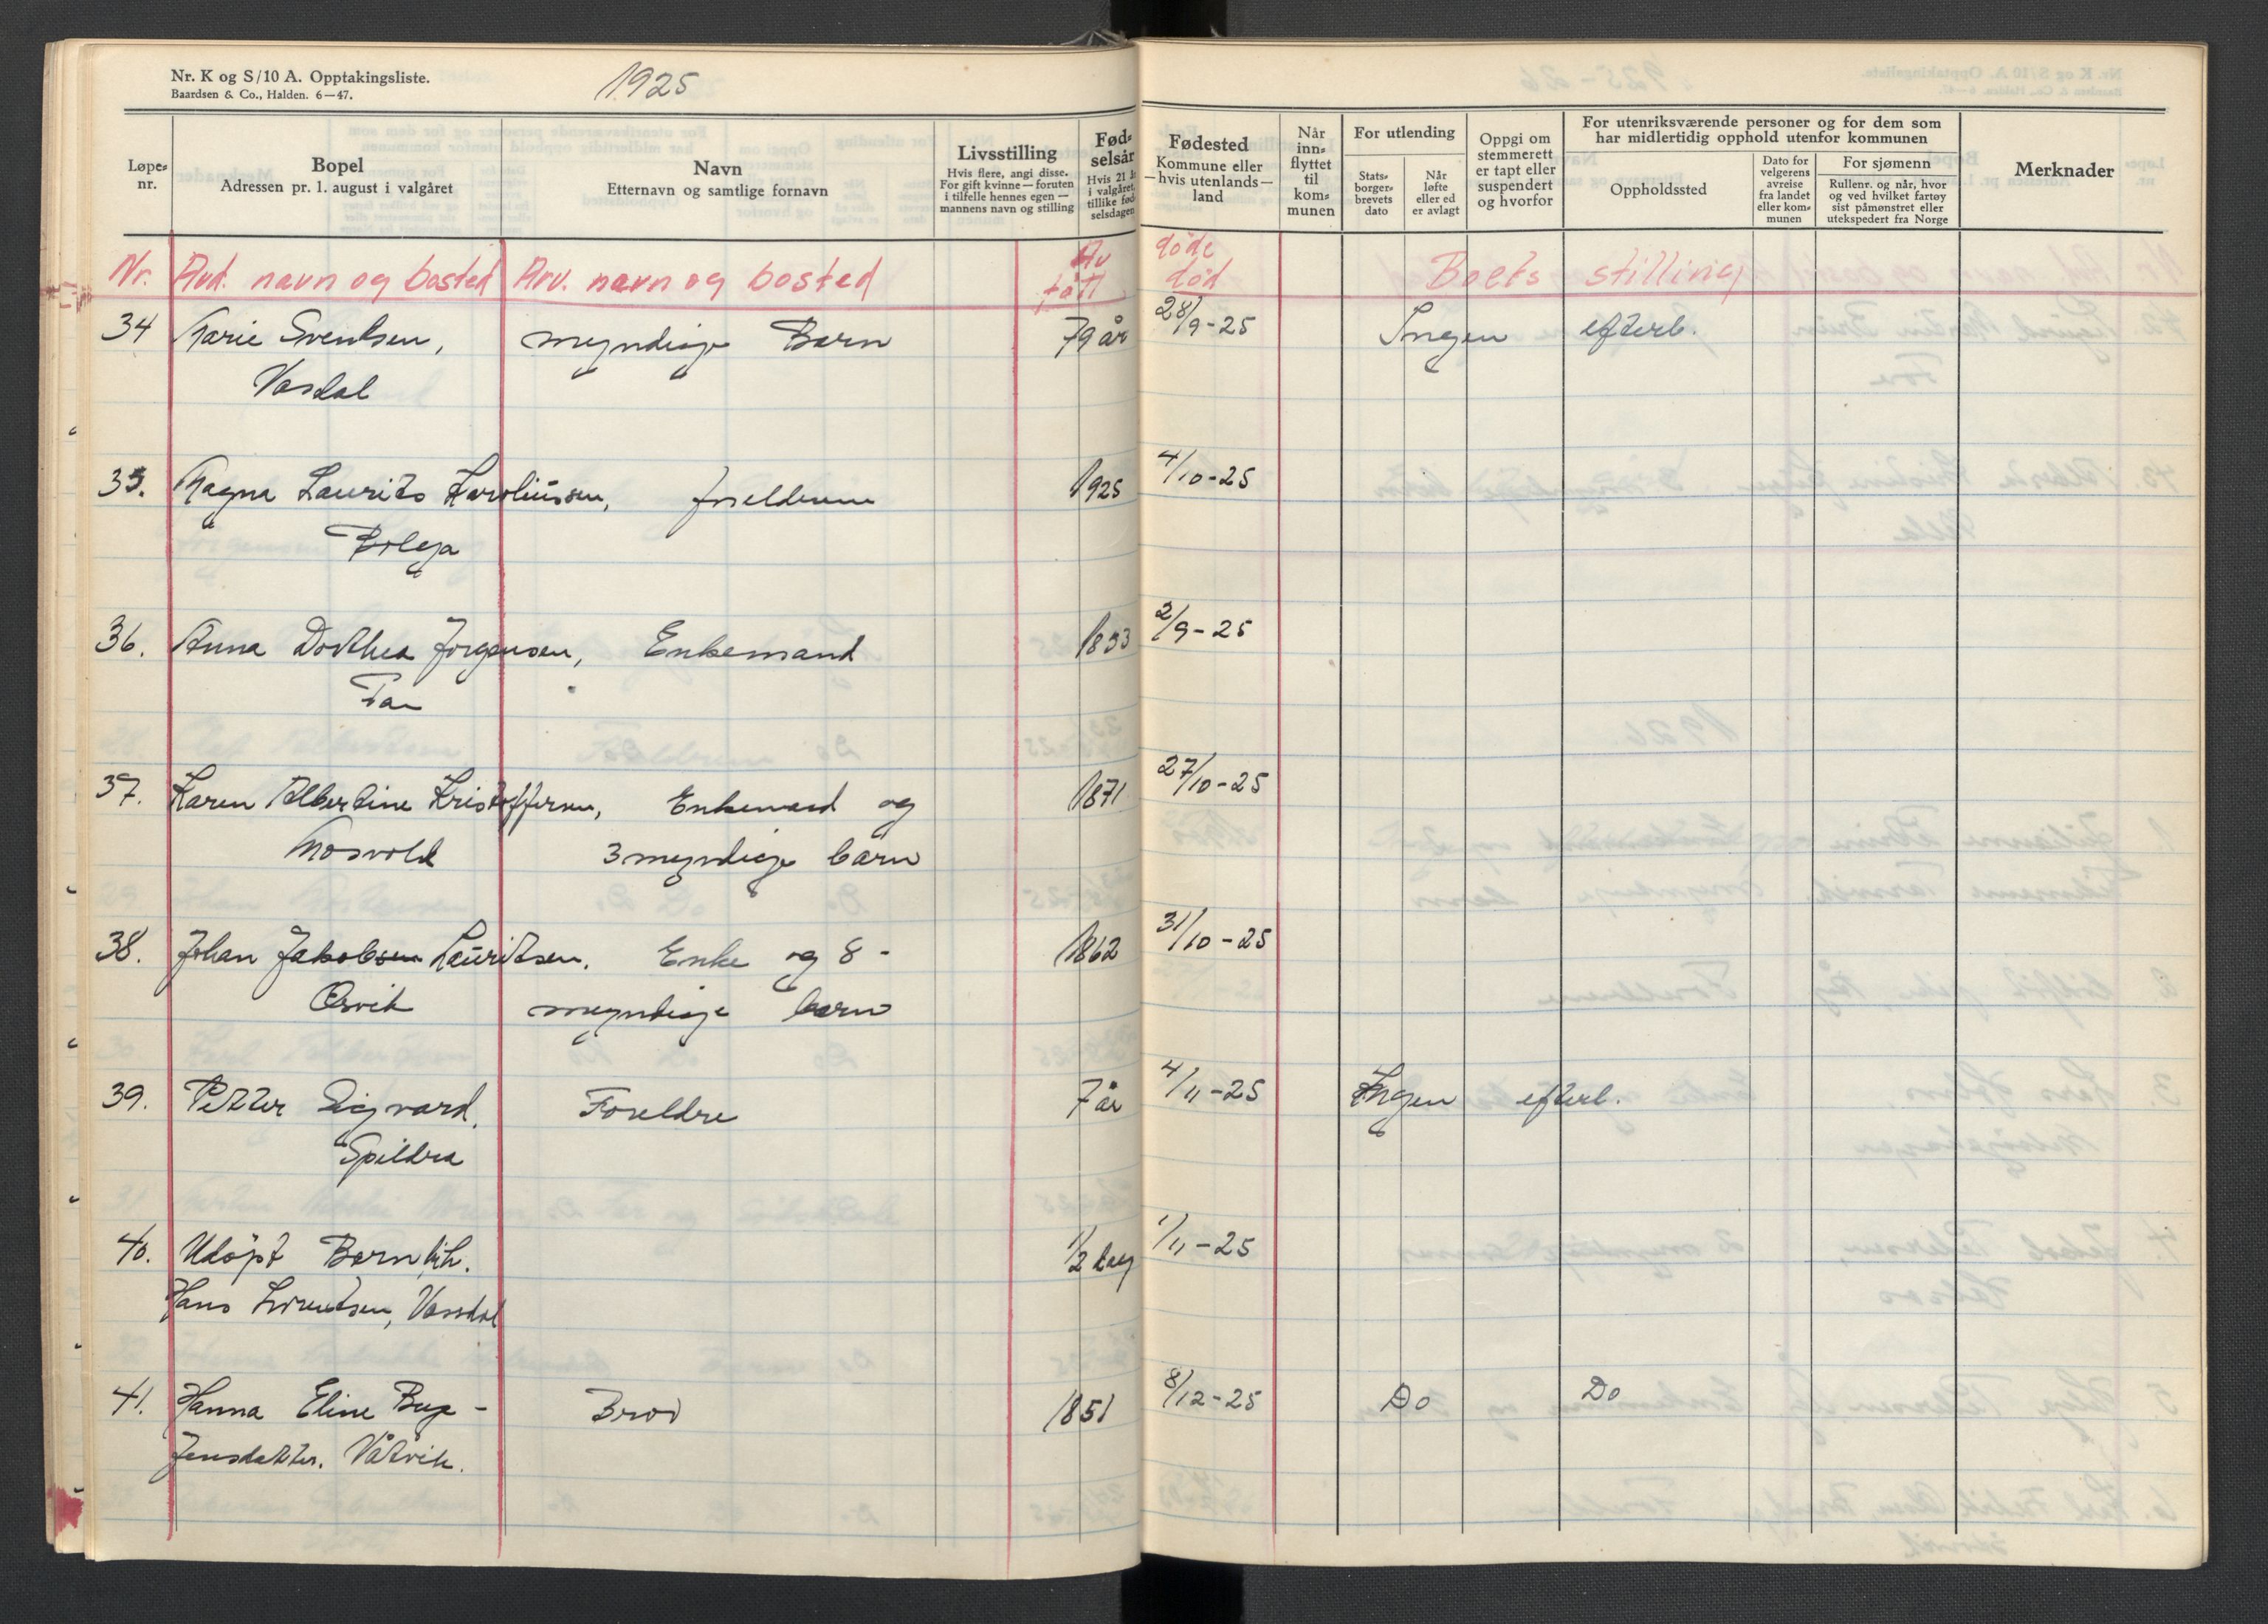 Nr. K og S/10 A. Opptakingsliste.
Baardsen & Co., Halden. 6—47.
1925
Løpe-nr.
Bopel
Adressen pr. 1. august i valgåret
Navn
Etternavn og samtlige fornavn
Livsstilling
Hvis flere, angi disse.
For gift kvinne — foruten
i tilfelle hennes egen —
mannens navn og stilling
Fød-
selsår
Hvis 21 år
i valgåret,
tillike fød-
selsdagen
Fødested
Kommune eller
—hvis utenlands—
land
Når
inn-
flyttet
til
kom-
munen
For utlending
Stats-
borger-
brevets
dato
Når
løfte
eller ed
er avlagt
Oppgi om
stemmerett
er tapt eller
suspendert
og hvorfor
For utenriksværende personer og for dem som
har midlertidig opphold utenfor kommunen
Oppholdssted
Dato for
velgerens
avreise
fra landet
eller kom-
munen
For sjømenn
Rullenr. og når, hvor
og ved hvilket fartøy
sist påmønstret eller
utekspedert fra Norge
Merknader
Nr. Avd. navn og bosted Arv. navn og bosted Av døde
født død Boets stilling
34 Marie Svendsen, myndige Barn 79 år 28/9-25 Ingen efterb.
Vasdal
35. Magna Laurits Karoliussen, foreldrene 1925 4/10-25
Bolga
36. Anna Dorthea Jorgensen, Enkemand 1853 2/9-25
37. Karen Albertine Kristoffersen, Enkemand og 1871 27/10-25
Mosvold 3 myndige barn
38. Johan Jakobsen Lauritsen. Enke og 8- 1862 31/10-25
Ørvik myndige barn
39. Petter Sigvard. Foreldre 7 år 4/11-25 Ingen efterl.
Spildra
40. Udöpt Barn, 1/2 dag 1/11-25
Hans Lorentsen, Vassdal
41. Hanna Eline Bug- Bror 1851 8/12-25 Do Do
Jensdatter. Våtvik.